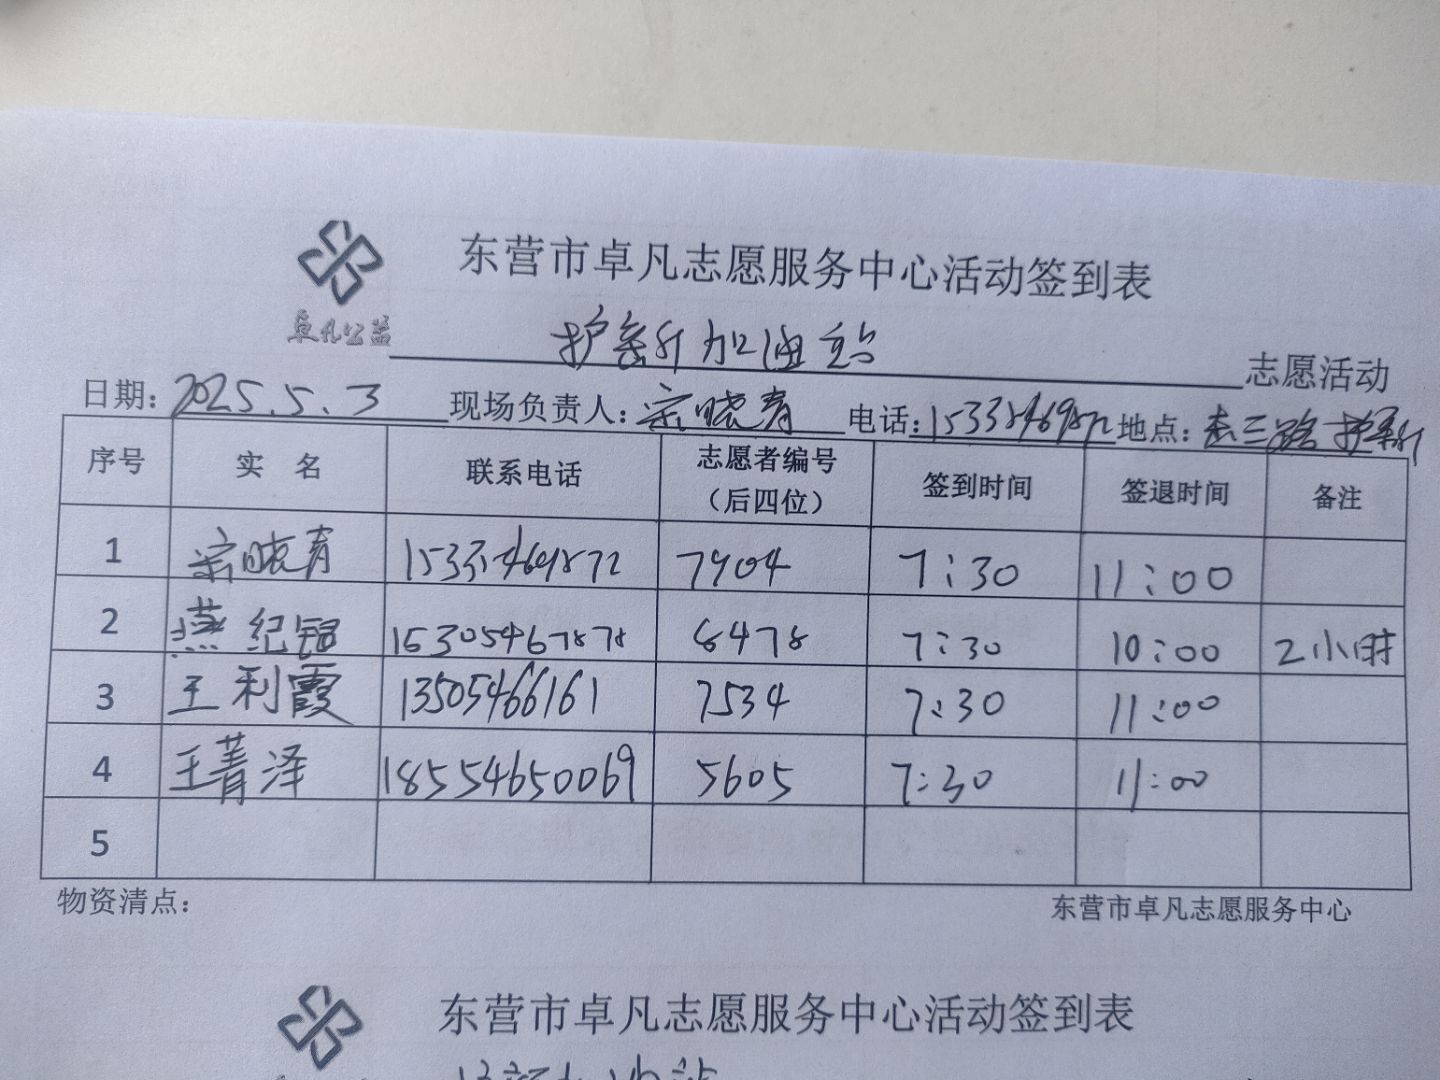 东营市卓凡志愿服务中心活动签到表
卓凡公益
护 加油站 志愿活动
日期：2025.5.3 现场负责人：宗晓青 电话：15335469872 地点：三路
序号 实 名 联系电话 志愿者编号（后四位） 签到时间 签退时间 备注
1 宗晓青 15335469872 7904 7:30 11:00
2 燕纪 15305467878 6478 7:30 10:00 2小时
3 王利霞 13505466161 7534 7:30 11:00
4 王菁泽 18554650069 5605 7:30 11:00
5
物资清点： 东营市卓凡志愿服务中心
东营市卓凡志愿服务中心活动签到表